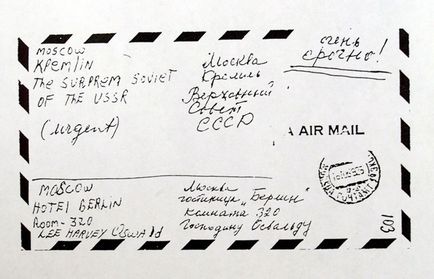 MOSCOW
KREMLIN
THE SUPREM SOVIET
OF THE USSR
(urgent)
Москва
Кремль
Верховный
Совет
СССР
очень
срочно!
A AIR MAIL
MOSCOW
HOTEL BERLIN
ROOM-320
LEE HARVEY Oswald
Москва
гостиница "Берлин"
комната 320
Господину Освальду
103